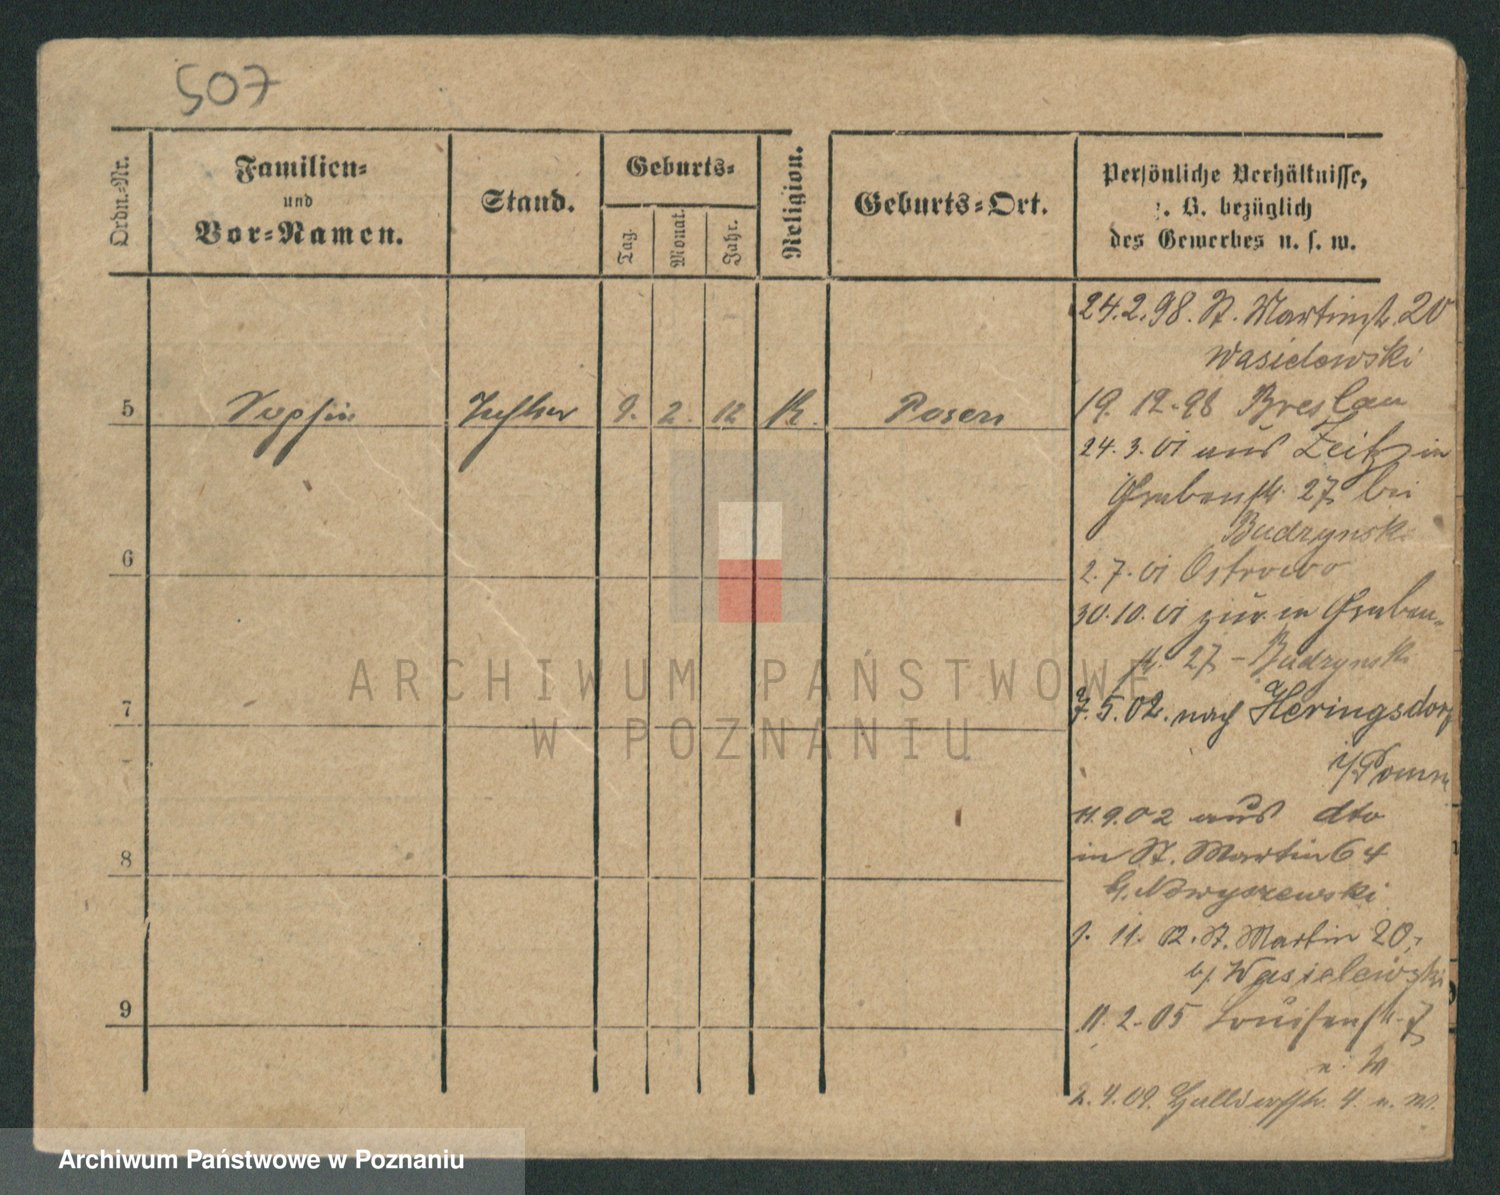 507
Ordn.-Nr.
Familien-
und
Vor-Namen.
Stand.
Geburts-
Tag.
Monat.
Jahr.
Religion.
Geburts-Ort.
Persönliche Verhältnisse,
z. B. bezüglich
des Gewerbes u. s. w.
24.2.98. St. Martinstr. 20
Wasielewski
5 Sophie Tochter 9. 2. 12 K. Posen
19. 12. 98 Breslau
24. 3. 01 aus Zeitz in
Grabenstr. 27 bei
Budzynski
6
2. 7. 01 Ostrowo
30. 10. 01 zur. in Graben-
str. 27 - Budzynski
7
7. 5. 02. nach Heringsdorf
i/Pomm
11. 9. 02 aus dto
8
in St. Martin 64
b.
1. 11. 02. St. Martin 20,
b/ Wasielewski
9
11. 2. 05 Louisenstr. 7
u. W
2. 4. 09. 4. u. W.
ARCHIWUM PAŃSTWOWE
W POZNANIU
Archiwum Państwowe w Poznaniu